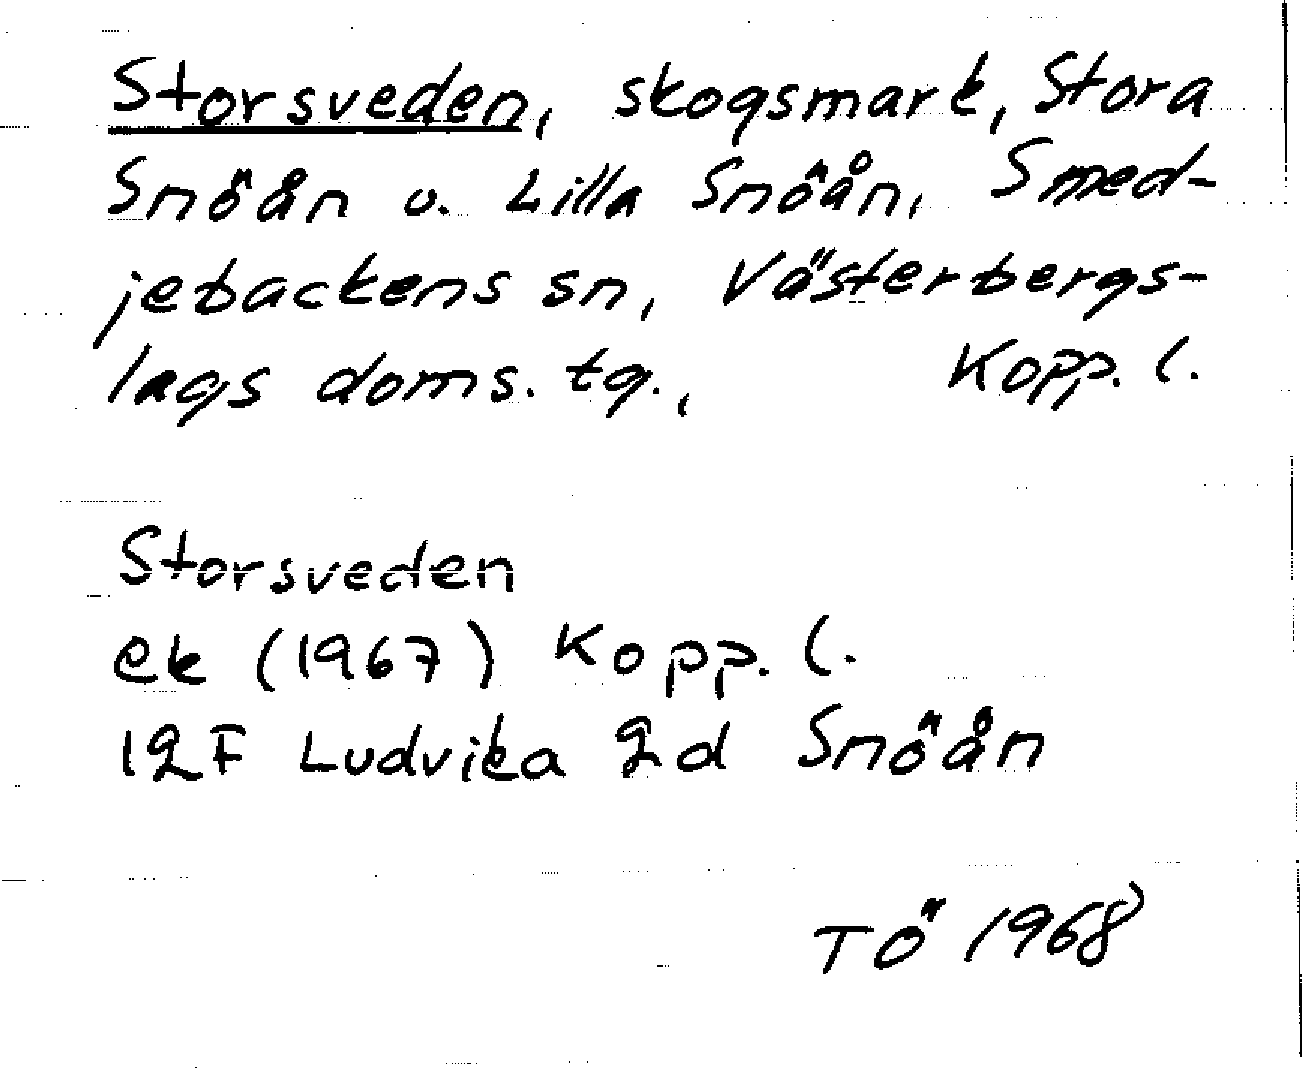 Storsveden, skogsmark, Stora
Snöån o. Lilla Snöån, Smed-
jebackens sn, Västerbergs-
lags doms. tg., Kopp. l.
Storsveden
ek (1967) Kopp. l.
12F Ludvika 2d Snöån
TÖ 1968